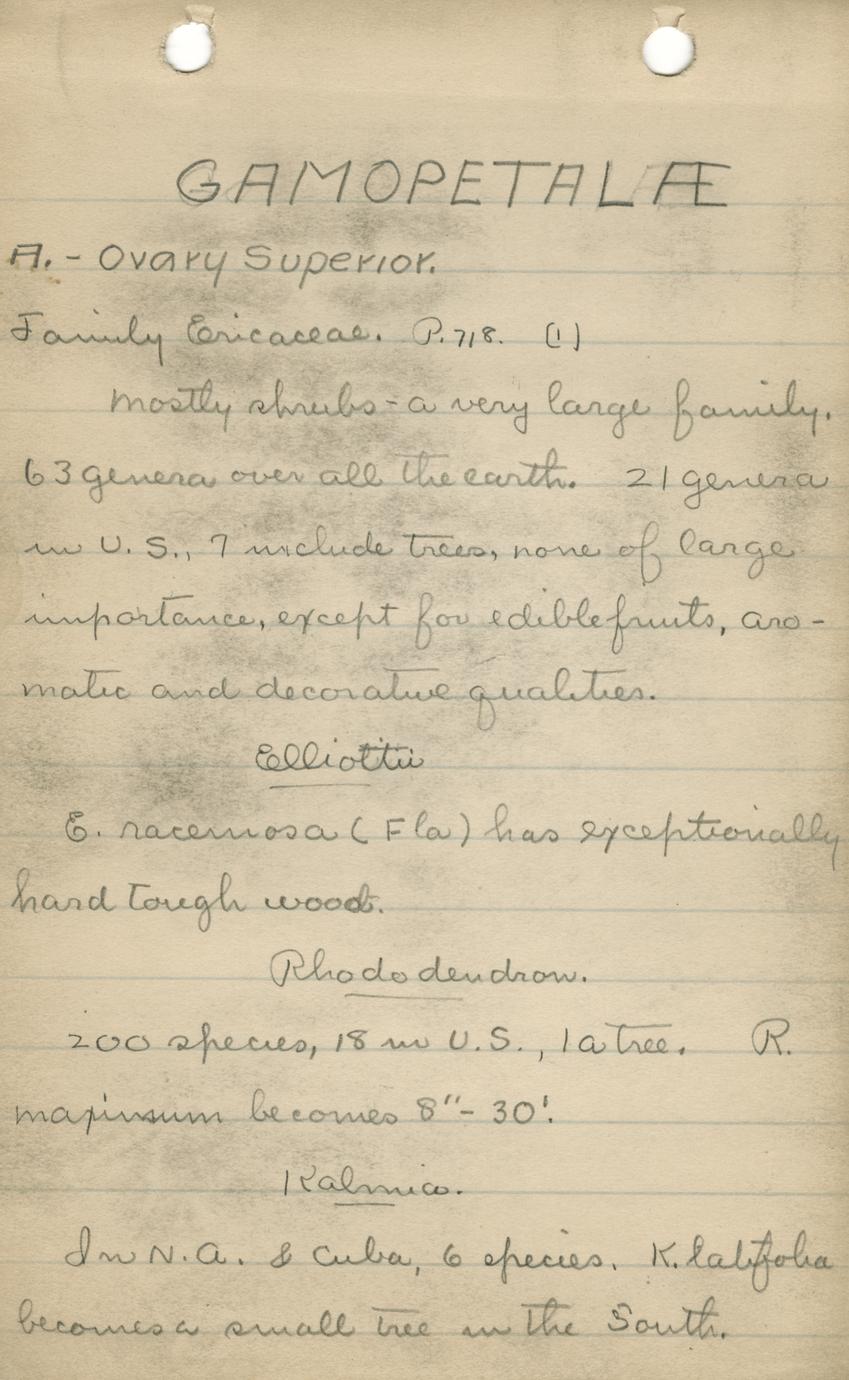 GAMOPETALÆ
A. - Ovary Superior.
Family Ericaceae. P. 718. (1)
Mostly shrubs - a very large family.
63 genera over all the earth. 21 genera
in U.S., 7 include trees, none of large
importance, except for edible fruits, aro-
matic and decorative qualities.
Elliottii
E. racemosa (Fla) has exceptionally
hard tough wood.
Rhododendron.
200 species, 18 in U.S., 1 a tree. R.
maximum becomes 8"- 30'.
Kalmia.
In N.A. & Cuba, 6 species. K. latifolia
becomes a small tree in the South.